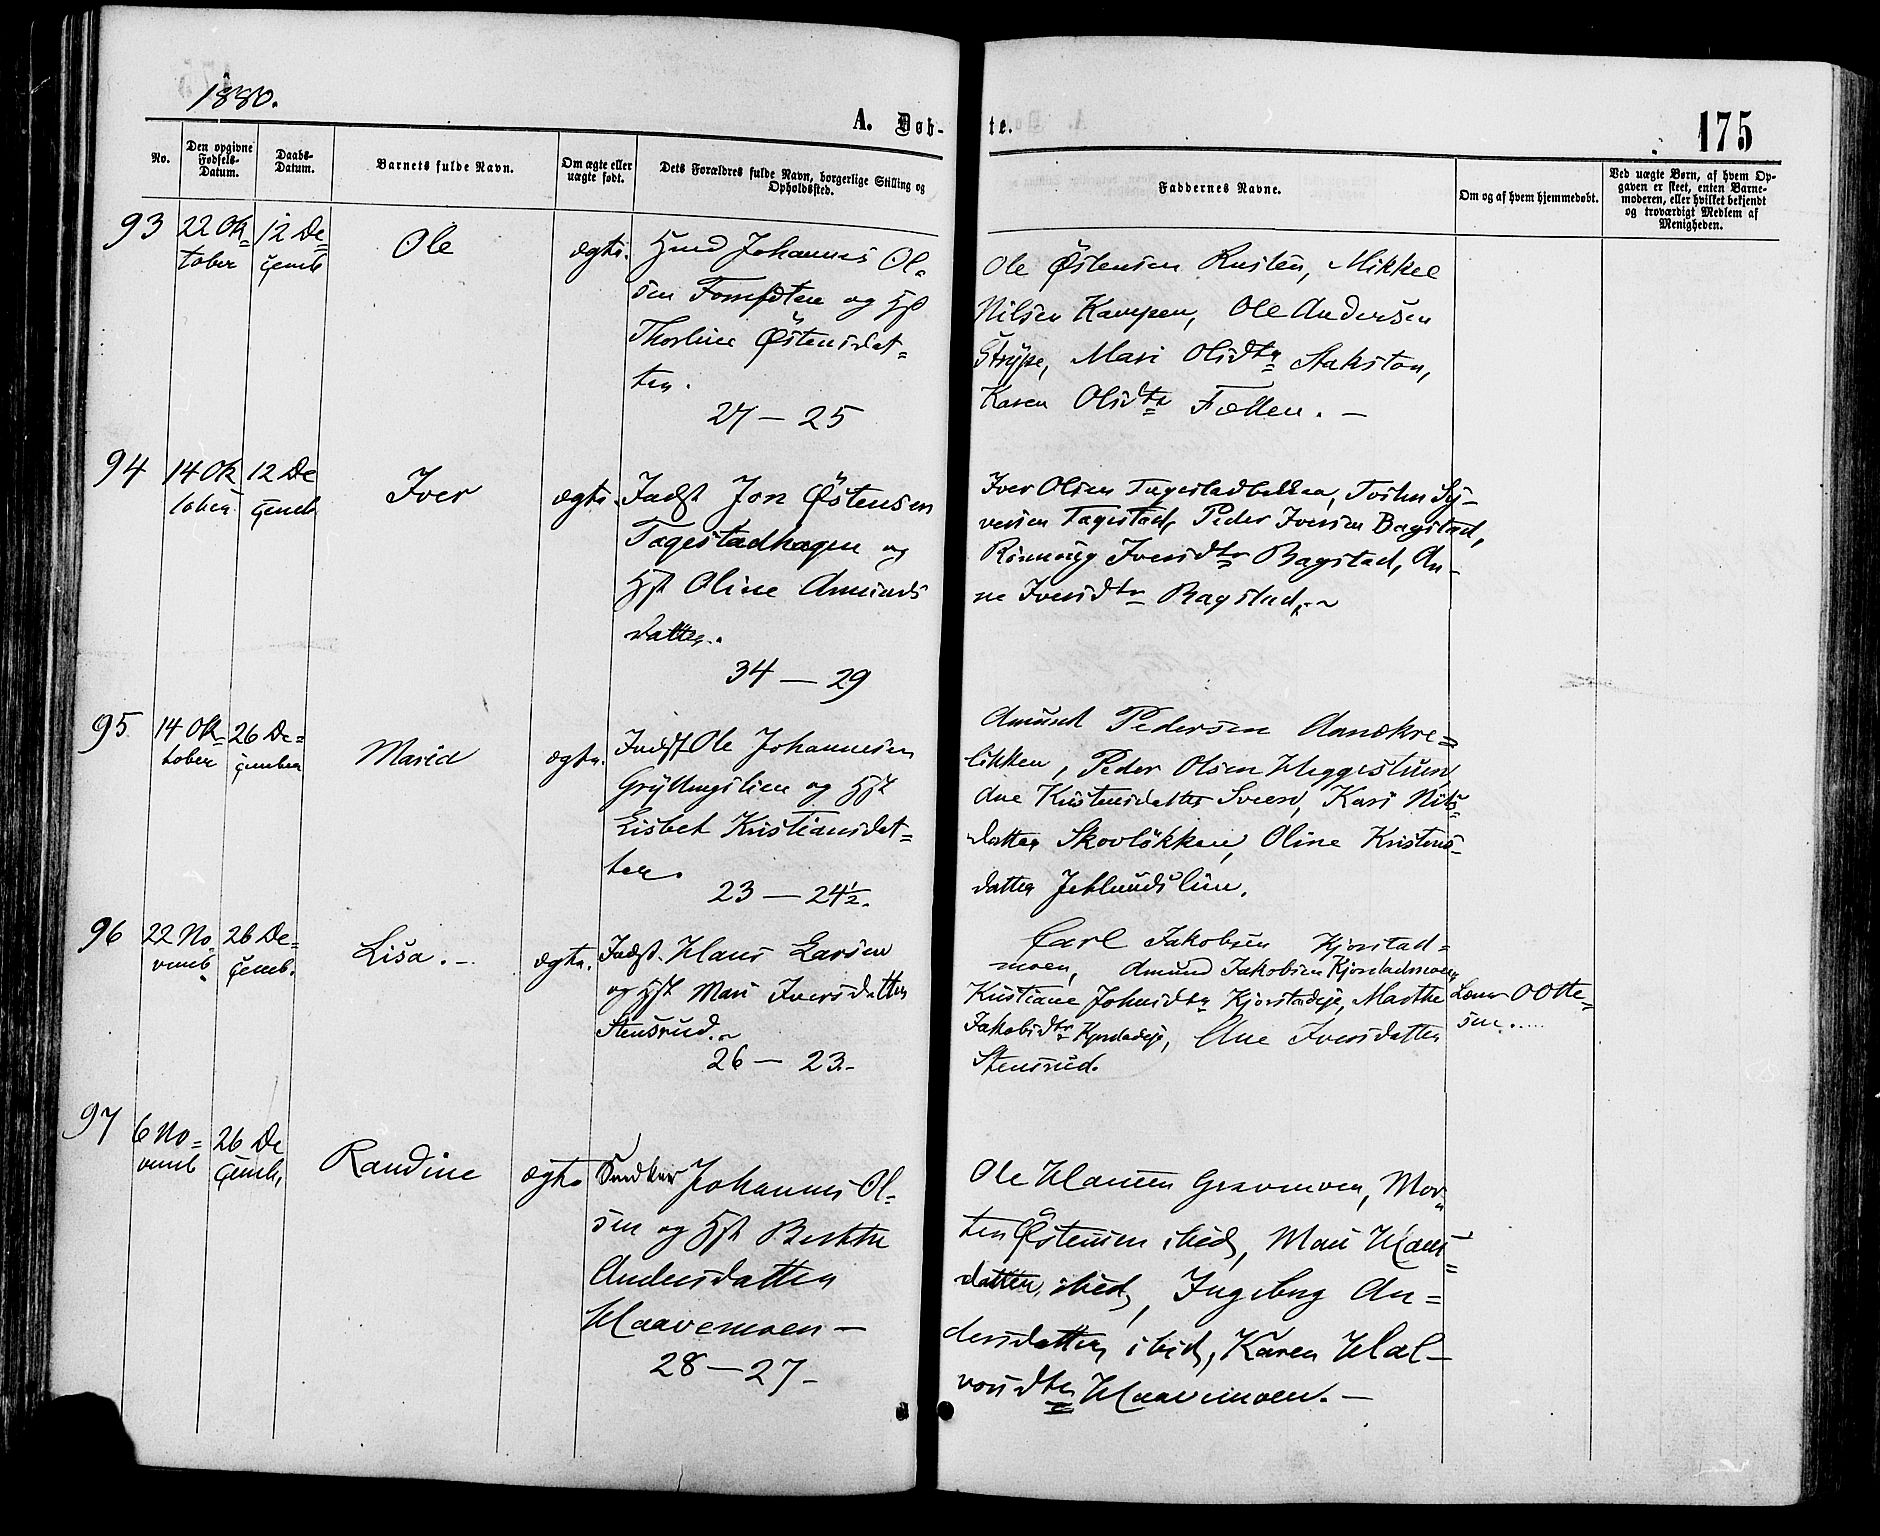 1880.
A. Døb-
te.
175
No.
Den opgivne Fødsels-Datum.
Daabs-Datum.
Barnets fulde Navn.
Om ægte eller uægte født.
Dets Forældres fulde Navn, borgerlige Stilling og Opholdssted.
Faddernes Navne.
Om og af hvem hjemmedøbt.
Ved uægte Børn, af hvem Op-
gaven er skeet, enten Barne-
moderen, eller hvilket bekjendt
og troværdigt Medlem af
Menigheden.
93
22 Ok=
tober
12 De=
cemb
Ole
ægte.
Johannes Ol=
sen og Hst
Thorline Østensdat=
ter.
27 — 25
Ole Østensen Rusten, Mikkel
Nilsen Kampen, Ole Andersen
Strype, Mari Olsdtr Stakston,
Karen Olsdtr —
94
14 Ok
tober
12 De
cemb
Iver
ægte.
Indst Jon Østensen
Tagestadhagen og
Hst Oline Amunds
datter.
34 — 29
Iver Olsen Tagestadbakken, Sy-
versen Tagestad, Peder Iversen Bagstad,
Rønnaug Iversdtr Bagstad, An-
ne Iversdtr Bagstad.
95
14 Ok=
tober
26 De=
cember
Marid
ægte.
Indst Ole Johannesen
Gryttingslien og Hst
Lisbet Kristiansdat=
ter.
23 — 24½.
Amund Pedersen
Peder Olsen Heggestuen
Ane Kristensdatter Sveen, Kari Nils=
datter Skovløkken, Oline Kristens-
datter
96
22 No
vemb
26 De=
cemb.
Lisa. -
ægte.
Indst. Hans Larsen
og Hst Mari Iversdatter
Stensrud.
26 — 23.-
Carl Jakobsen Kjorstad=
moen, Amund Jakobsen Kjorstadmoen,
Kristiane Johnsdtr Kjorstadeje, Marthe
Jakobsdtr Kjorstadeje, Ane Iversdatter
Stensrud.
Ottе=
sen.....
97
6 No=
vemb
26 De
cemb,
Randine
ægte
Johannes Ol=
sen og Hst Berthe
Andersdatter
Haavemoen —
28 — 27 -
Ole Hansen Gravemoen, Mor=
ten Østensen ibid, Mari Hans=
datter, ibid, Ingeborg An=
dersdatter ibid, Karen Hal-
vorsdtr Haavemoen. —